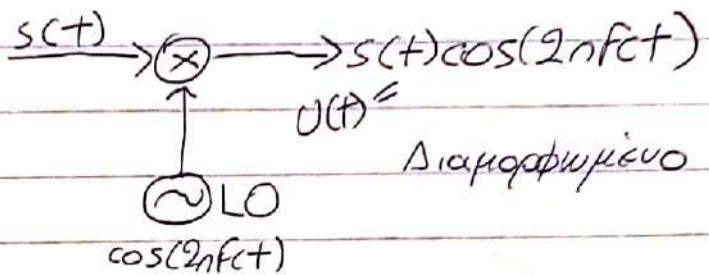 s(t)
s(t)cos(2πfct)
U(t) =
Διαμορφωμένο
LO
cos(2πfct)